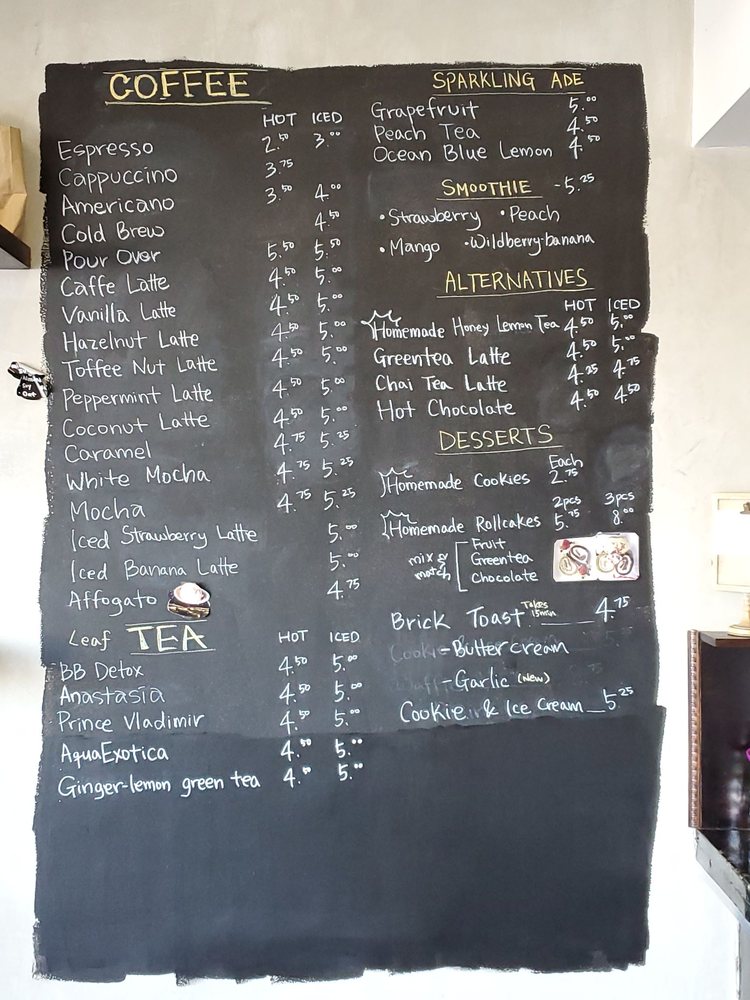 COFFEE
HOT ICED
Espresso 2.50 3.00
Cappuccino 3.75
Americano 3.50 4.00
Cold Brew 4.50
Pour Over 5.50 5.50
Caffe Latte 4.50 5.00
Vanilla Latte 4.50 5.00
Hazelnut Latte 4.50 5.00
Toffee Nut Latte 4.50 5.00
Peppermint Latte 4.50 5.00
Coconut Latte 4.50 5.00
Caramel 4.75 5.25
White Mocha 4.75 5.25
Mocha 4.75 5.25
Iced Strawberry Latte 5.00
Iced Banana Latte 5.00
Affogato 4.75
Leaf TEA HOT ICED
BB Detox 4.50 5.00
Anastasia 4.50 5.00
Prince Vladimir 4.50 5.00
AquaExotica 4.50 5.00
Ginger-lemon green tea 4.50 5.00
SPARKLING ADE
Grapefruit 5.00
Peach Tea 4.50
Ocean Blue Lemon 4.50
SMOOTHIE - 5.25
• Strawberry • Peach
• Mango • Wildberry-banana
ALTERNATIVES
HOT ICED
Homemade Honey Lemon Tea 4.50 5.00
Greentea Latte 4.50 5.00
Chai Tea Latte 4.25 4.75
Hot Chocolate 4.50 4.50
DESSERTS
Each
Homemade Cookies 2.75
2pcs 3pcs
Homemade Rollcakes 5.75 8.00
mix & match
Fruit
Greentea
Chocolate
Brick Toast Takes 15min 4.75
- Butter cream
- Garlic (new)
Cookie & Ice Cream 5.25